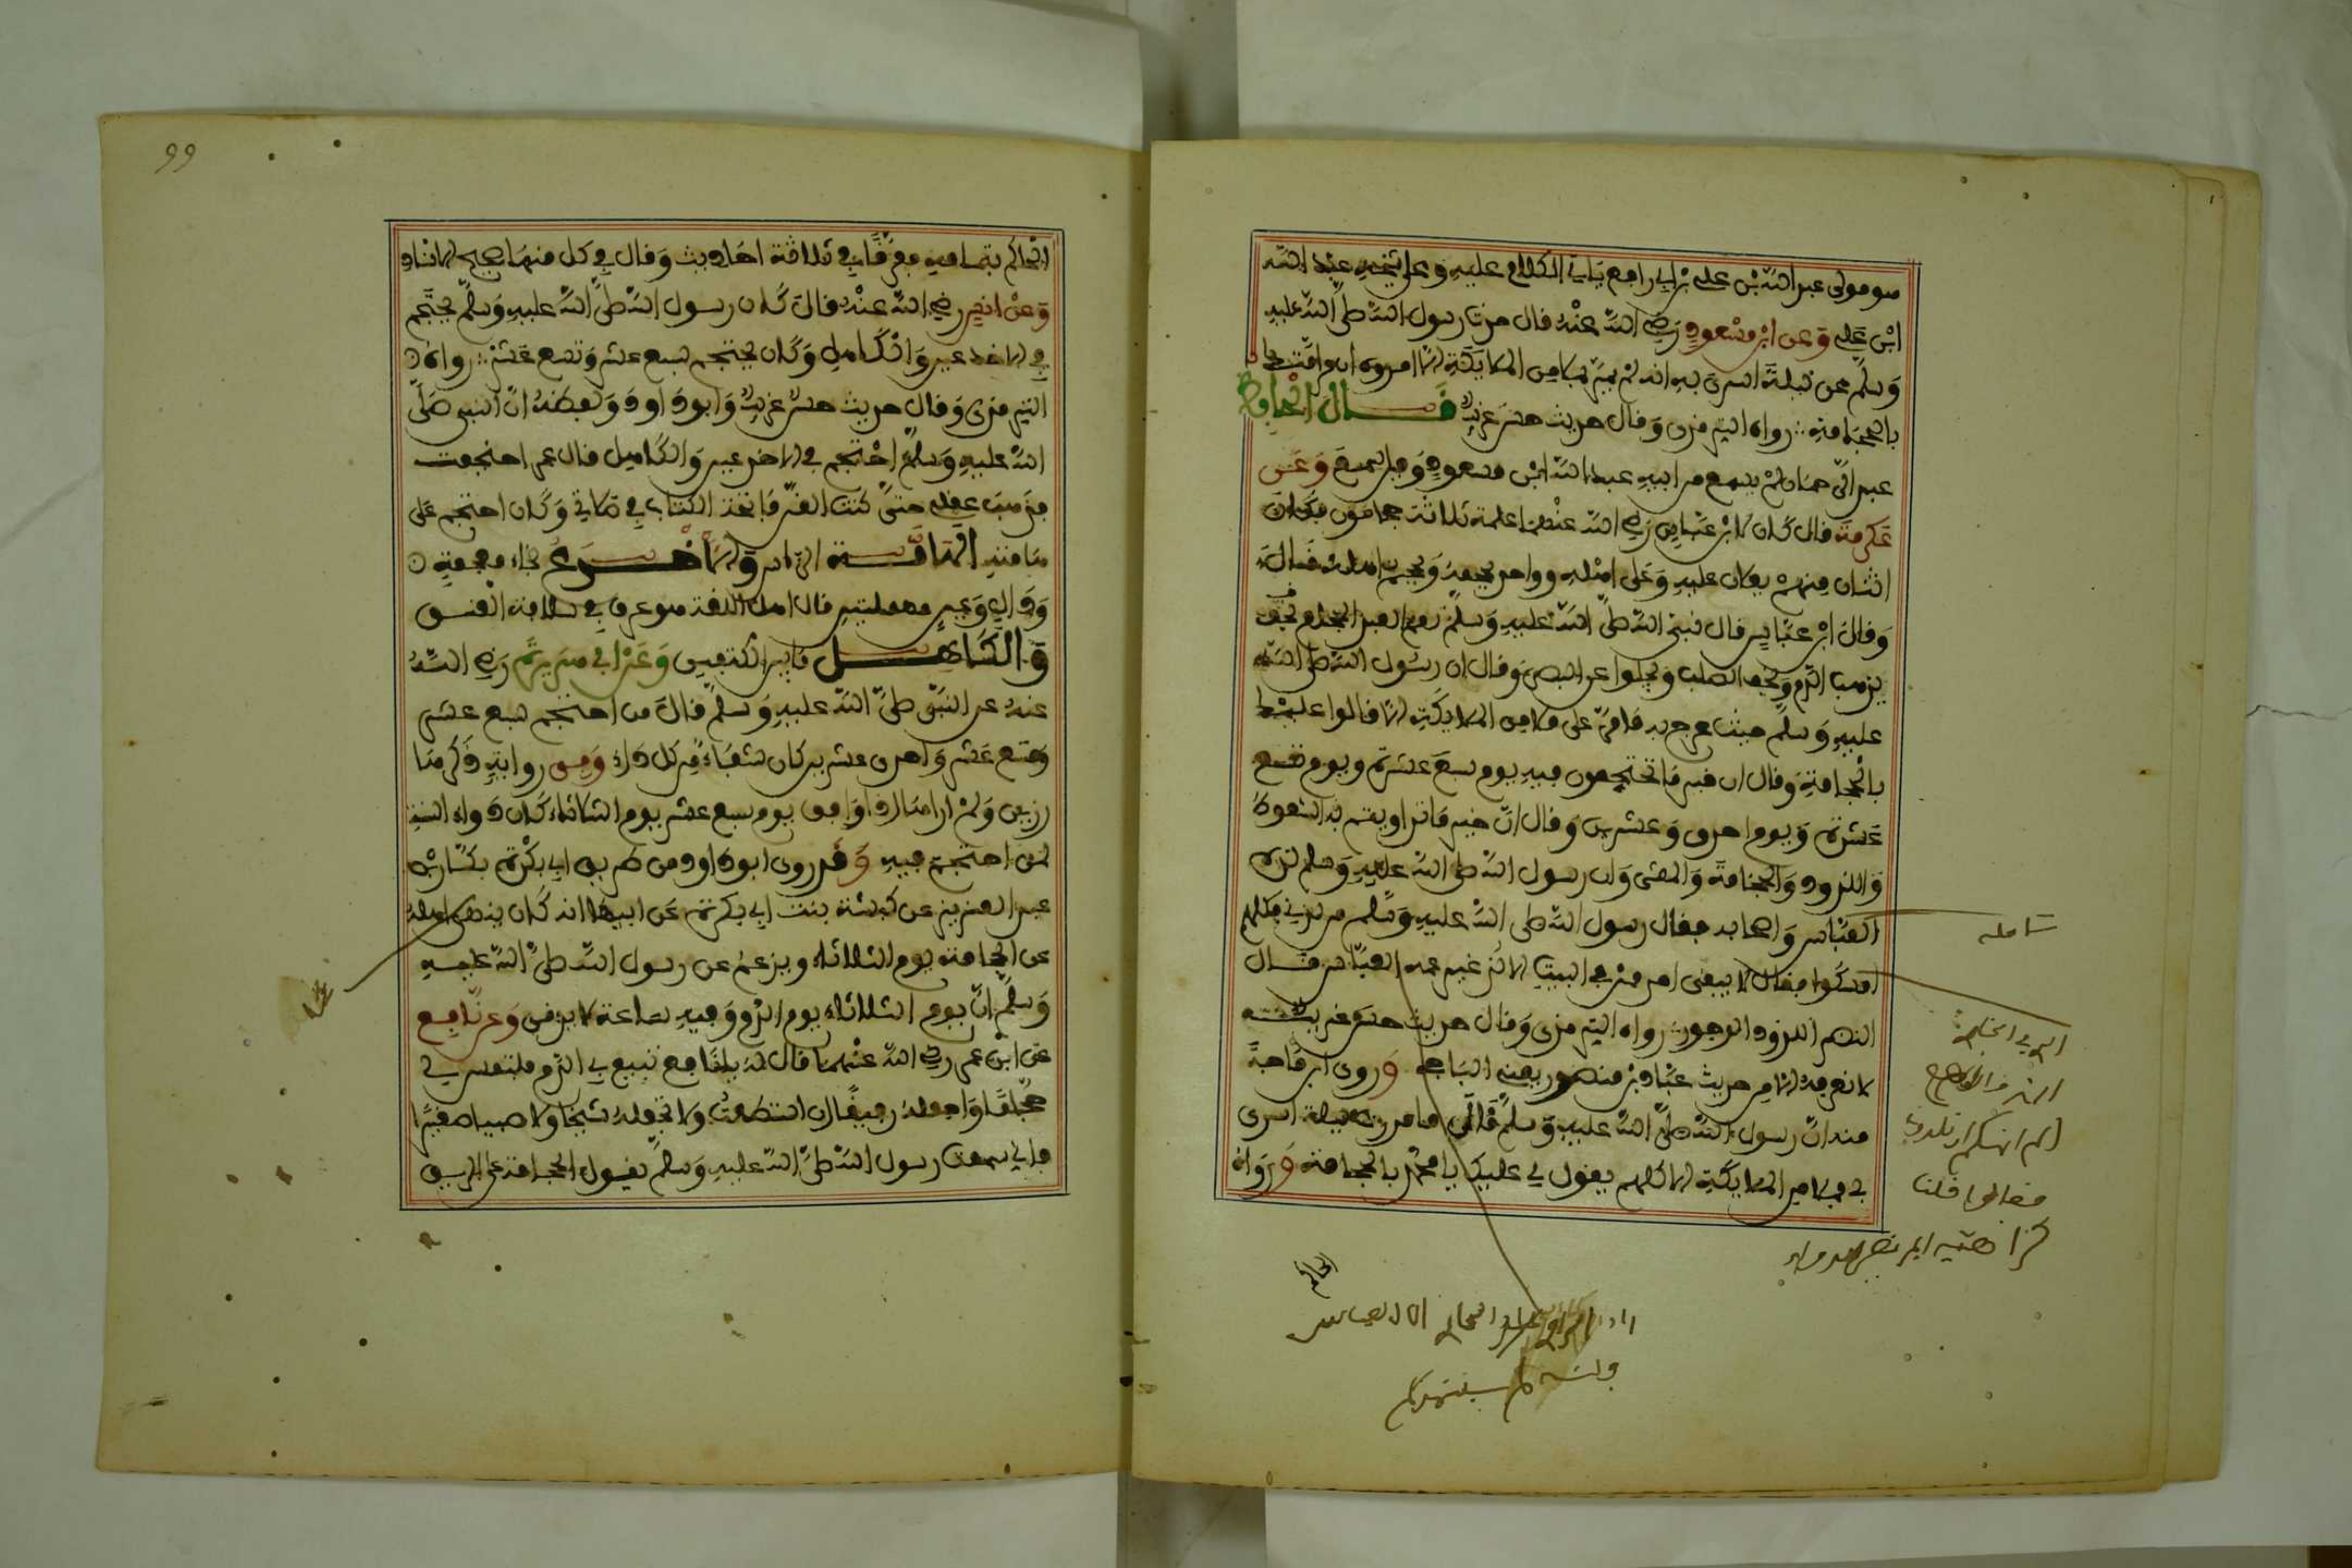 هو مولى عبد الله بن علي بن ابي رافع ياتي الكلام عليه وعلى شيخه عبد الله
ابن علي وعن ابن مسعود رضي الله عنه قال حدث رسول الله صلى الله عليه
وسلم عن ليلة اسري به انه لم يمر بملا من الملايكة الا امروه ان مر امتك
بالحجامة رواه الترمذي وقال حديث حسن غريب قال الحافظ
عبد الرحمان لم يسمع من ابيه عبد الله ابن مسعود وقيل سمع وعن
عكرمة قال كان لابن عباس رضي الله عنهما غلمة ثلاثة حجامون فكان
اثنان منهم يغلان عليه وعلى اهله وواحد يحجمه ويحجم اهله قال
وقال ابن عباس قال نبي الله صلى الله عليه وسلم نعم العبد الحجام
يذهب الدم ويخف الصلب ويجلوا عن البصر وقال ان رسول الله صلى الله
عليه وسلم حيث عرج به ما مر على ملا من الملايكة الا قالوا عليك
بالحجامة وقال ان خير ما تحتجمون فيه يوم سبع عشرة ويوم تسع
عشرة ويوم احدى وعشرين وقال ان خير ما تداويتم به السعوط
واللدود والحجامة والمشي وان رسول الله صلى الله عليه وسلم لده
العباس واصحابه فقال رسول الله صلى الله عليه وسلم من لدني فكلهم
امسكوا فقال لا يبقى احد ممن في البيت الا لد غير عمه العباس قال
النضر اللدود الوجور رواه الترمذي وقال حديث حسن غريب
لا نعرفه الا من حديث عباد بن منصور يعني الناجي وروى ابن ماجة
منه ان رسول الله صلى الله عليه وسلم قال ما مررت ليلة اسري
بي بملا من الملايكة الا كلهم يقول لي عليك يا محمد بالحجامة ورواه
شامله
فقالوا قلنا
الحاكم
99
الحاكم بتمامه مفرقا في ثلاثة احاديث وقال في كل منها صحيح الاسناد
وعن انس رضي الله عنه قال كان رسول الله صلى الله عليه وسلم يحتجم
في الاخدعين والكاهل وكان يحتجم لسبع عشر وتسع عشر رواه
الترمذي وقال حديث حسن غريب وابو داود ولفظه ان النبي صلى
الله عليه وسلم احتجم في الاخدعين والكاهل قال معمر احتجمت
فذهب عقلي حتى كنت القن فاتحة الكتاب في صلاتي وكان احتجم على
هامته الهامة الراس والاخدع بخاء معجمة
ودال وعين مهملتين قال اهل اللغة هو عرق في سالفة العنق
والكاهل ما بين الكتفين وعن ابي هريرة رضي الله
عنه عن النبي صلى الله عليه وسلم قال من احتجم لسبع عشر
وتسع عشر واحدى عشرين كان شفاء من كل داء وفي رواية ذكرها
رزين ولم ارها اذا وافق يوم سبع عشر يوم الثلاثاء كان دواء السنة
لمن احتجم فيه وقد روى ابو داود من طريق ابي بكرة بكار بن
عبد العزيز عن كبشة بنت ابي بكرة عن ابيها انه كان ينهى اهله
عن الحجامة يوم الثلاثاء ويزعم عن رسول الله صلى الله عليه
وسلم ان يوم الثلاثاء يوم الدم وفيه ساعة لا يرقى وعن نافع
عن ابن عمر رضي الله عنهما قال له يا نافع تبيغ بي الدم فالتمس لي
حجاما واجعله رفيقا ان استطعت ولا تجعله شيخا ولا صبيا صغيرا
فاني سمعت رسول الله صلى الله عليه وسلم يقول الحجامة على الريق